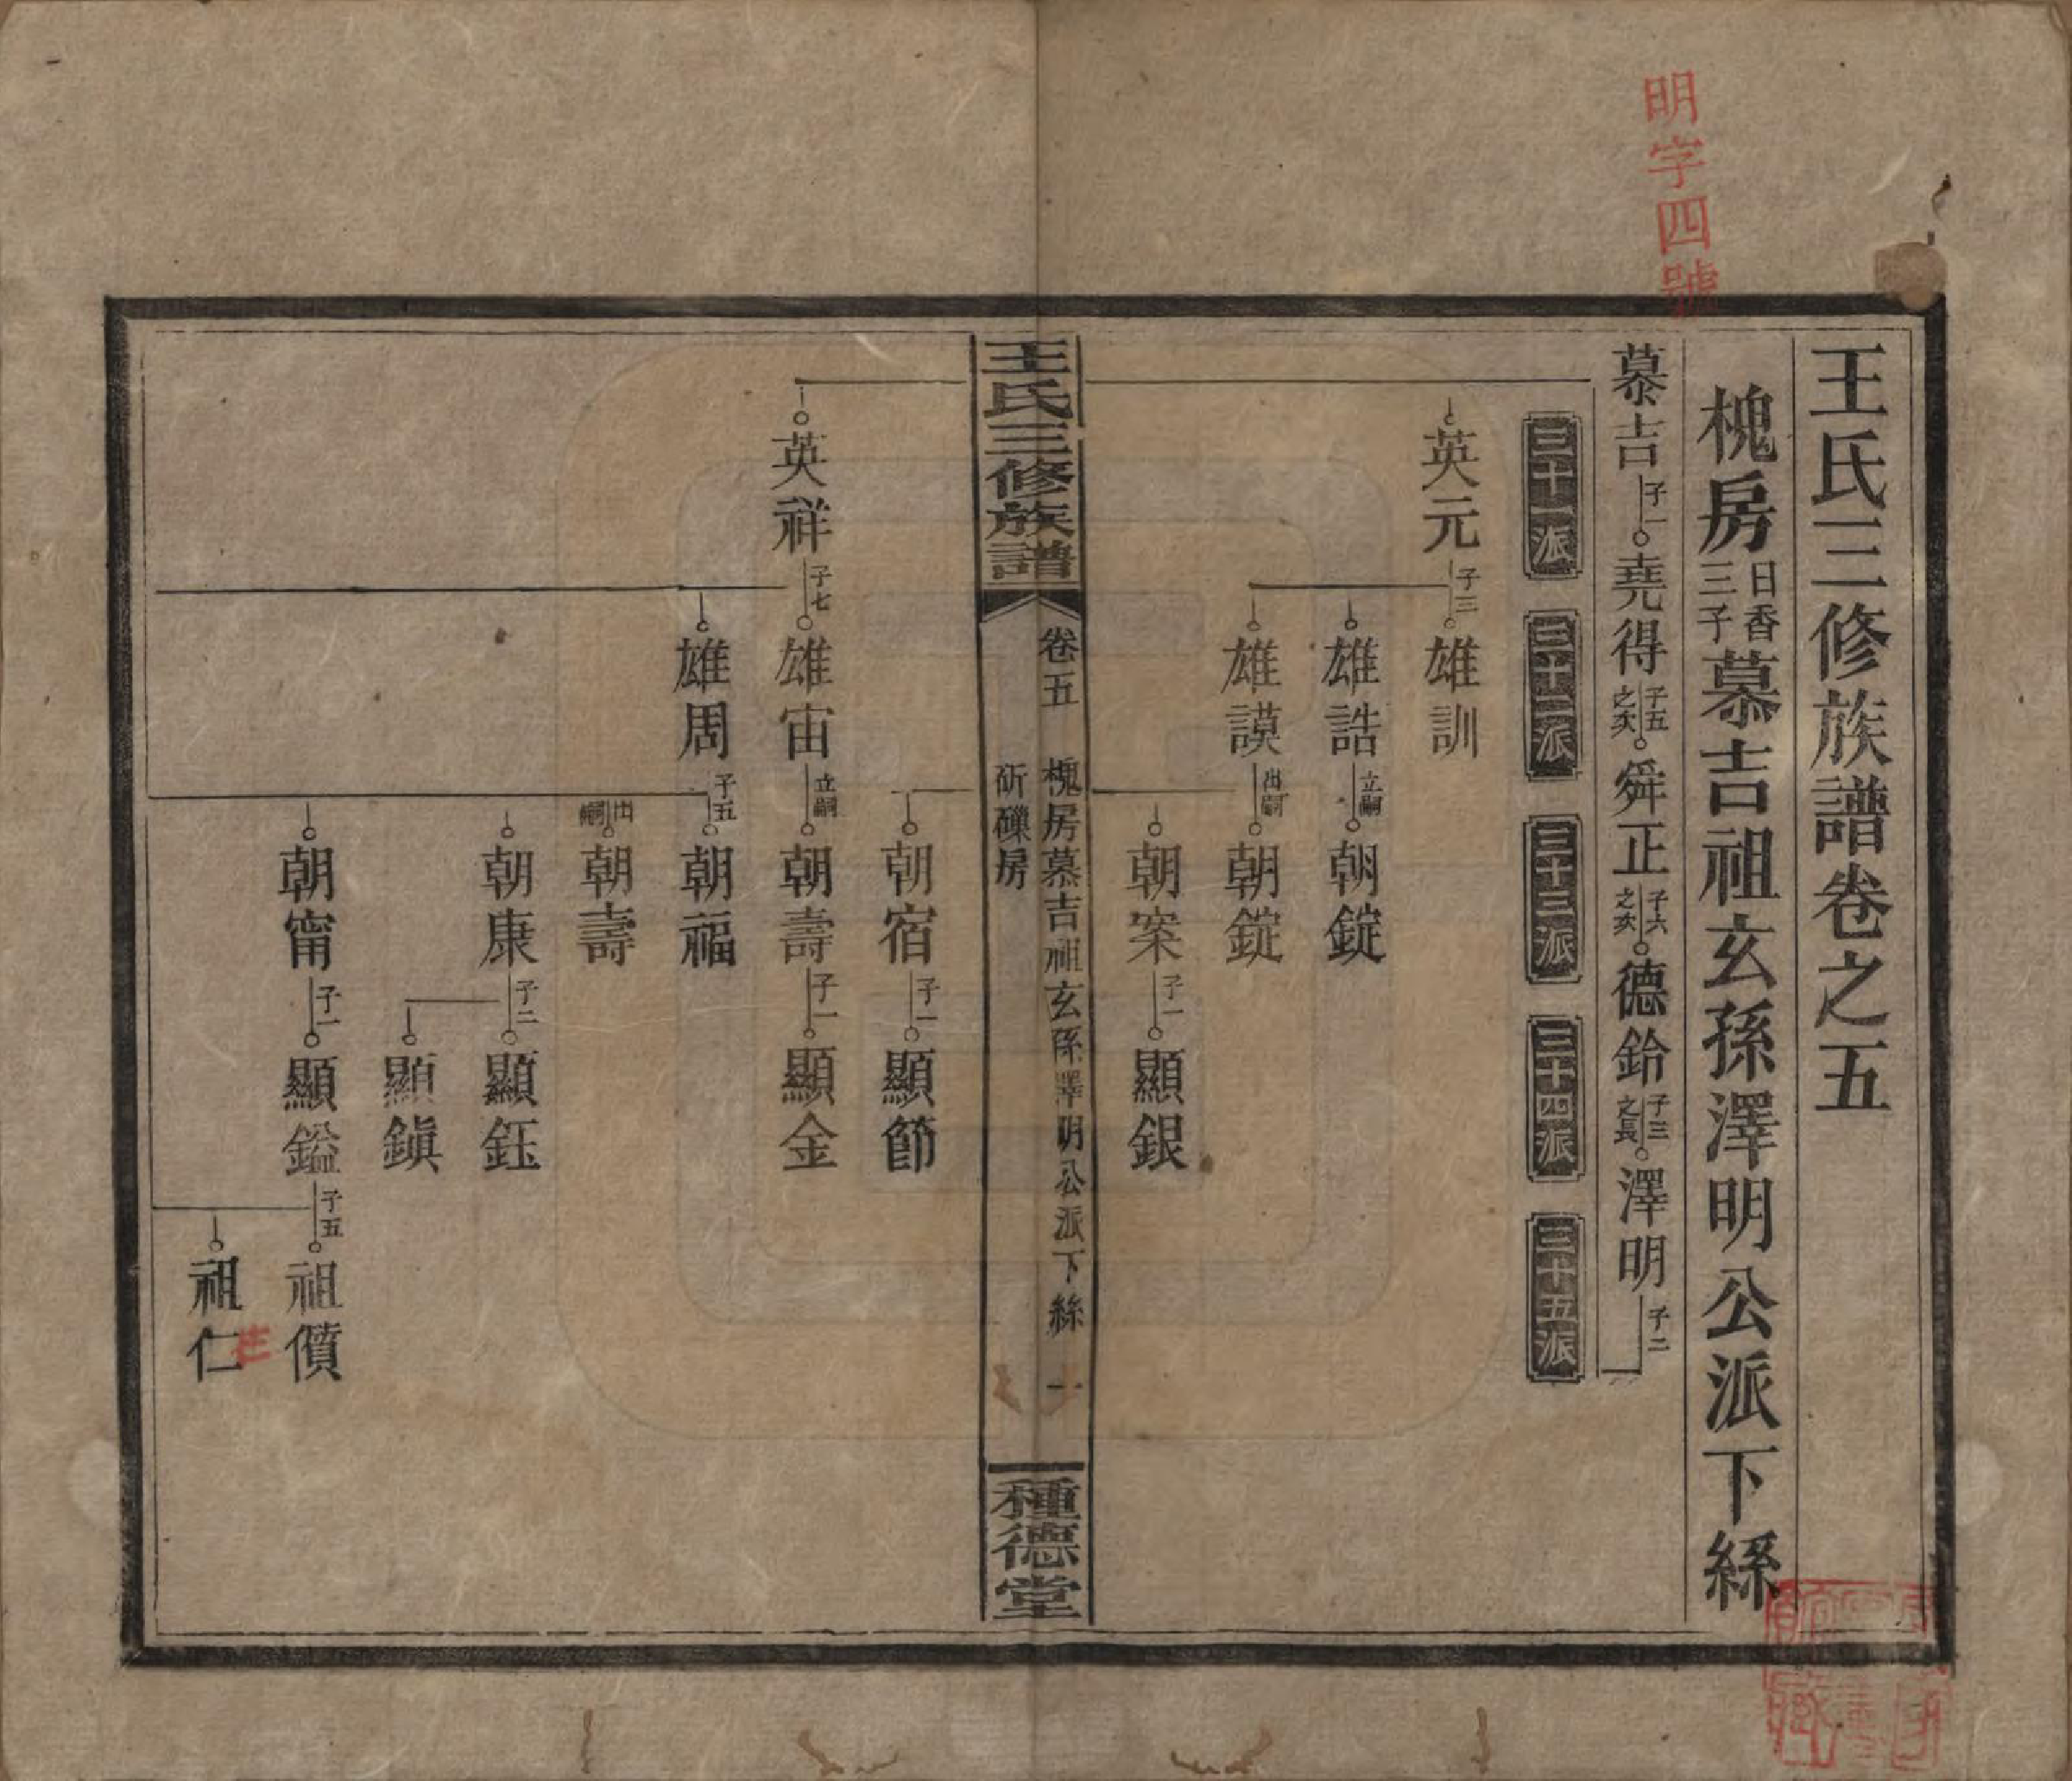 明字四號
王氏三修族譜卷之五
槐房日香三子慕吉祖玄孫澤明公派下系
慕吉 子一 堯得 子五之次 舜正 子六之次 德鈴 子三之長 澤明 子二
三十一派 三十二派 三十三派 三十四派 三十五派
英元 子三 雄訓
雄誥 立嗣 朝錠
雄謨 出嗣 朝錠
朝案 子一 顯銀
王氏三修族譜 卷五 槐房慕吉祖玄孫澤明公派下系 一 種德堂
斫礫房
朝宿 子一 顯節
英祥 子七 雄宙 立嗣 朝壽 子一 顯金
雄周 子五 朝福
出嗣 朝壽
朝康 子二 顯鈺
顯鎭
朝甯 子一 顯鎰 子五 祖償
祖仁